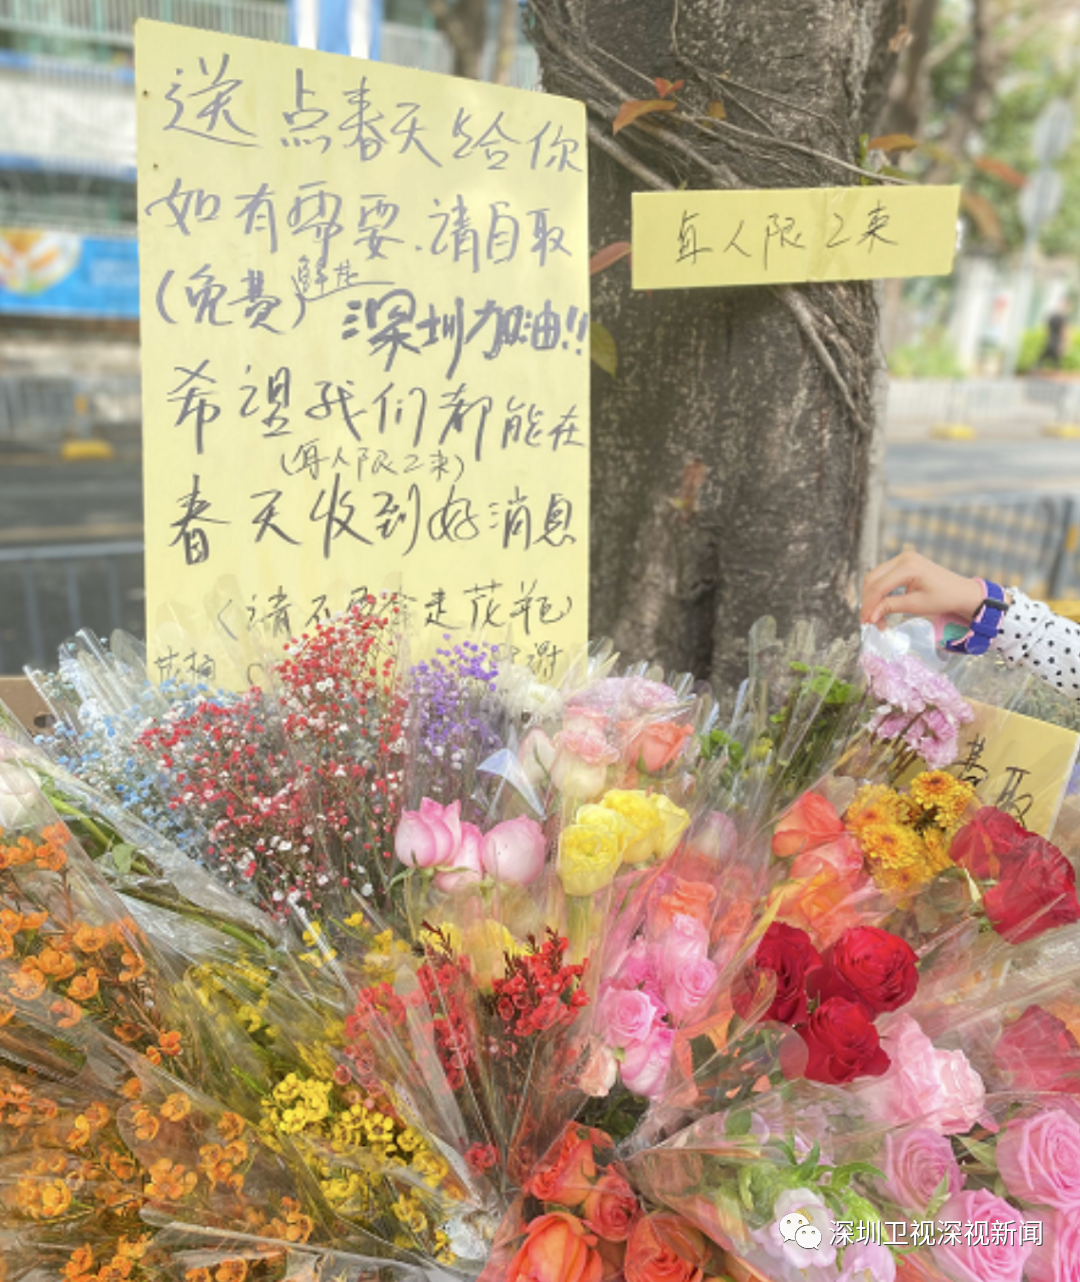 送点春天给你
如有需要.请自取
(免费)鲜花
深圳加油!!
希望我们都能在
(每人限2束)
春天收到好消息
(请不要拿走花筐)
每人限2束
取
深圳卫视深视新闻